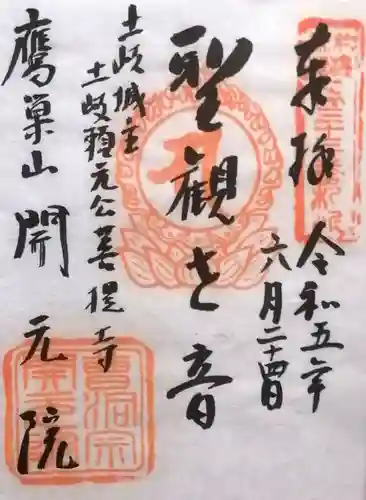 奉拝 令和五年
六月二十四日
聖観世音
土岐城主
土岐頼元公菩提寺
鷹巣山 開元院
曹洞宗